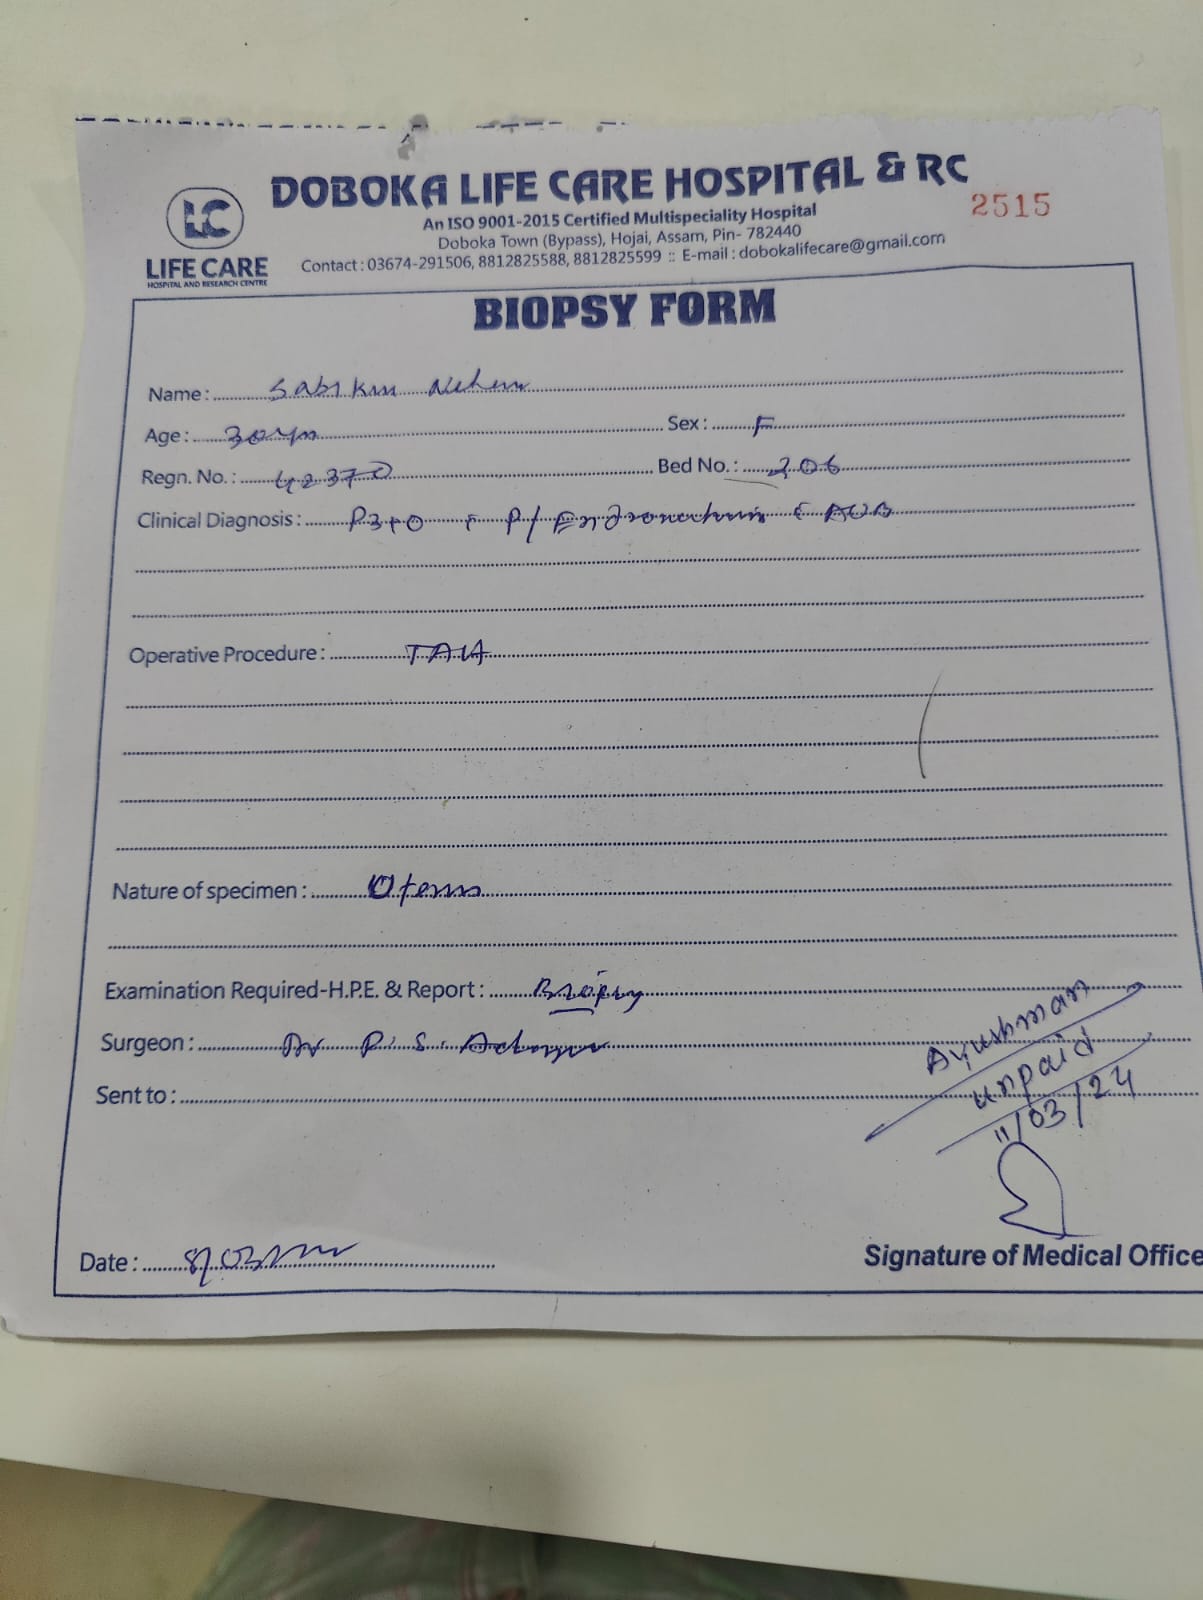 DOBOKA LIFE CARE HOSPITAL & RC
2515
An ISO 9001-2015 Certified Multispeciality Hospital
Doboka Town (Bypass), Hojai, Assam, Pin- 782440
Contact : 03674-291506, 8812825588, 8812825599 :: E-mail : dobokalifecare@gmail.com
LC
LIFE CARE
HOSPITAL AND RESEARCH CENTRE
BIOPSY FORM
Name :
Age : 30 yrs Sex : F
Regn. No. : 42370 Bed No. : 206
Clinical Diagnosis : P3+0 P/ AUB
Operative Procedure : TAH
Nature of specimen :
Examination Required-H.P.E. & Report : Biopsy
Surgeon : Dr P. S.
Sent to :
Ayushman
unpaid
11/03/24
Date :
Signature of Medical Office